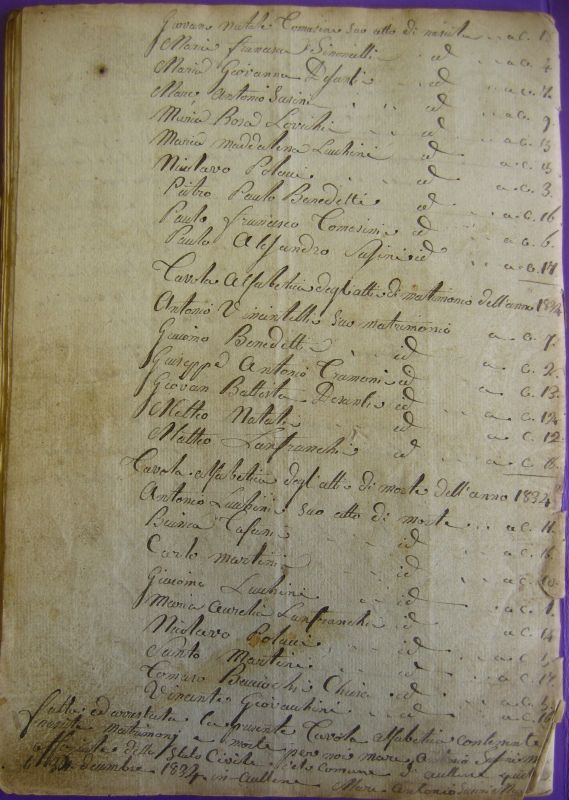 Giovan Natale Tomasini suo atto di nascita a C.
Maria Francesca Simonelli id a C. 4
Maria Giovanna id a C.
Marc Antonio Susini id a C. 9
Maria Rosa id a C. 13
Maria Maddalena Lucchini id a C.
Niculavo Polacci id a C. 3.
Pietro Paulo Benedetti id a C. 16
Paulo Francesco Tomasini id a C. 6.
Paulo Alessandro Susini id a C.
Tavola Alfabetica degli atti di matrimonio dell'anno 1834
Antonio Vincintelli suo matrimonio a C. 7.
Giacomo Benedetti id a C. 2.
Giuseppe Antonio Tramoni id a C. 13
Giovan Battista id a C. 14
Matteo Natali id a C. 12
Matteo Lanfranchi id a C. 8
Tavola alfabetica degl'atti di morte dell'anno 1834
Antonio Lucchini suo atto di morte a C. 11.
Bianca Cesari id a C.
Carlo Martini id a C. 10
Giacomo Lucchini id a C. 1.
Maria Aurelia Lanfranchi id a C. 14
Niculavo Polacci id a C.
Santo Martini id a C.
Tomaso Chiesa id a C.
Vincente Giovacchini id a C.
Fatta ed arrestata la presente Tavola alfabetica contenente
nascite Matrimoni e morte per noi Marc Antonio Susini
Officiale dello Stato Civile della Comune di Aullene
decembre 1834 in Aullene Marc Antonio Susini